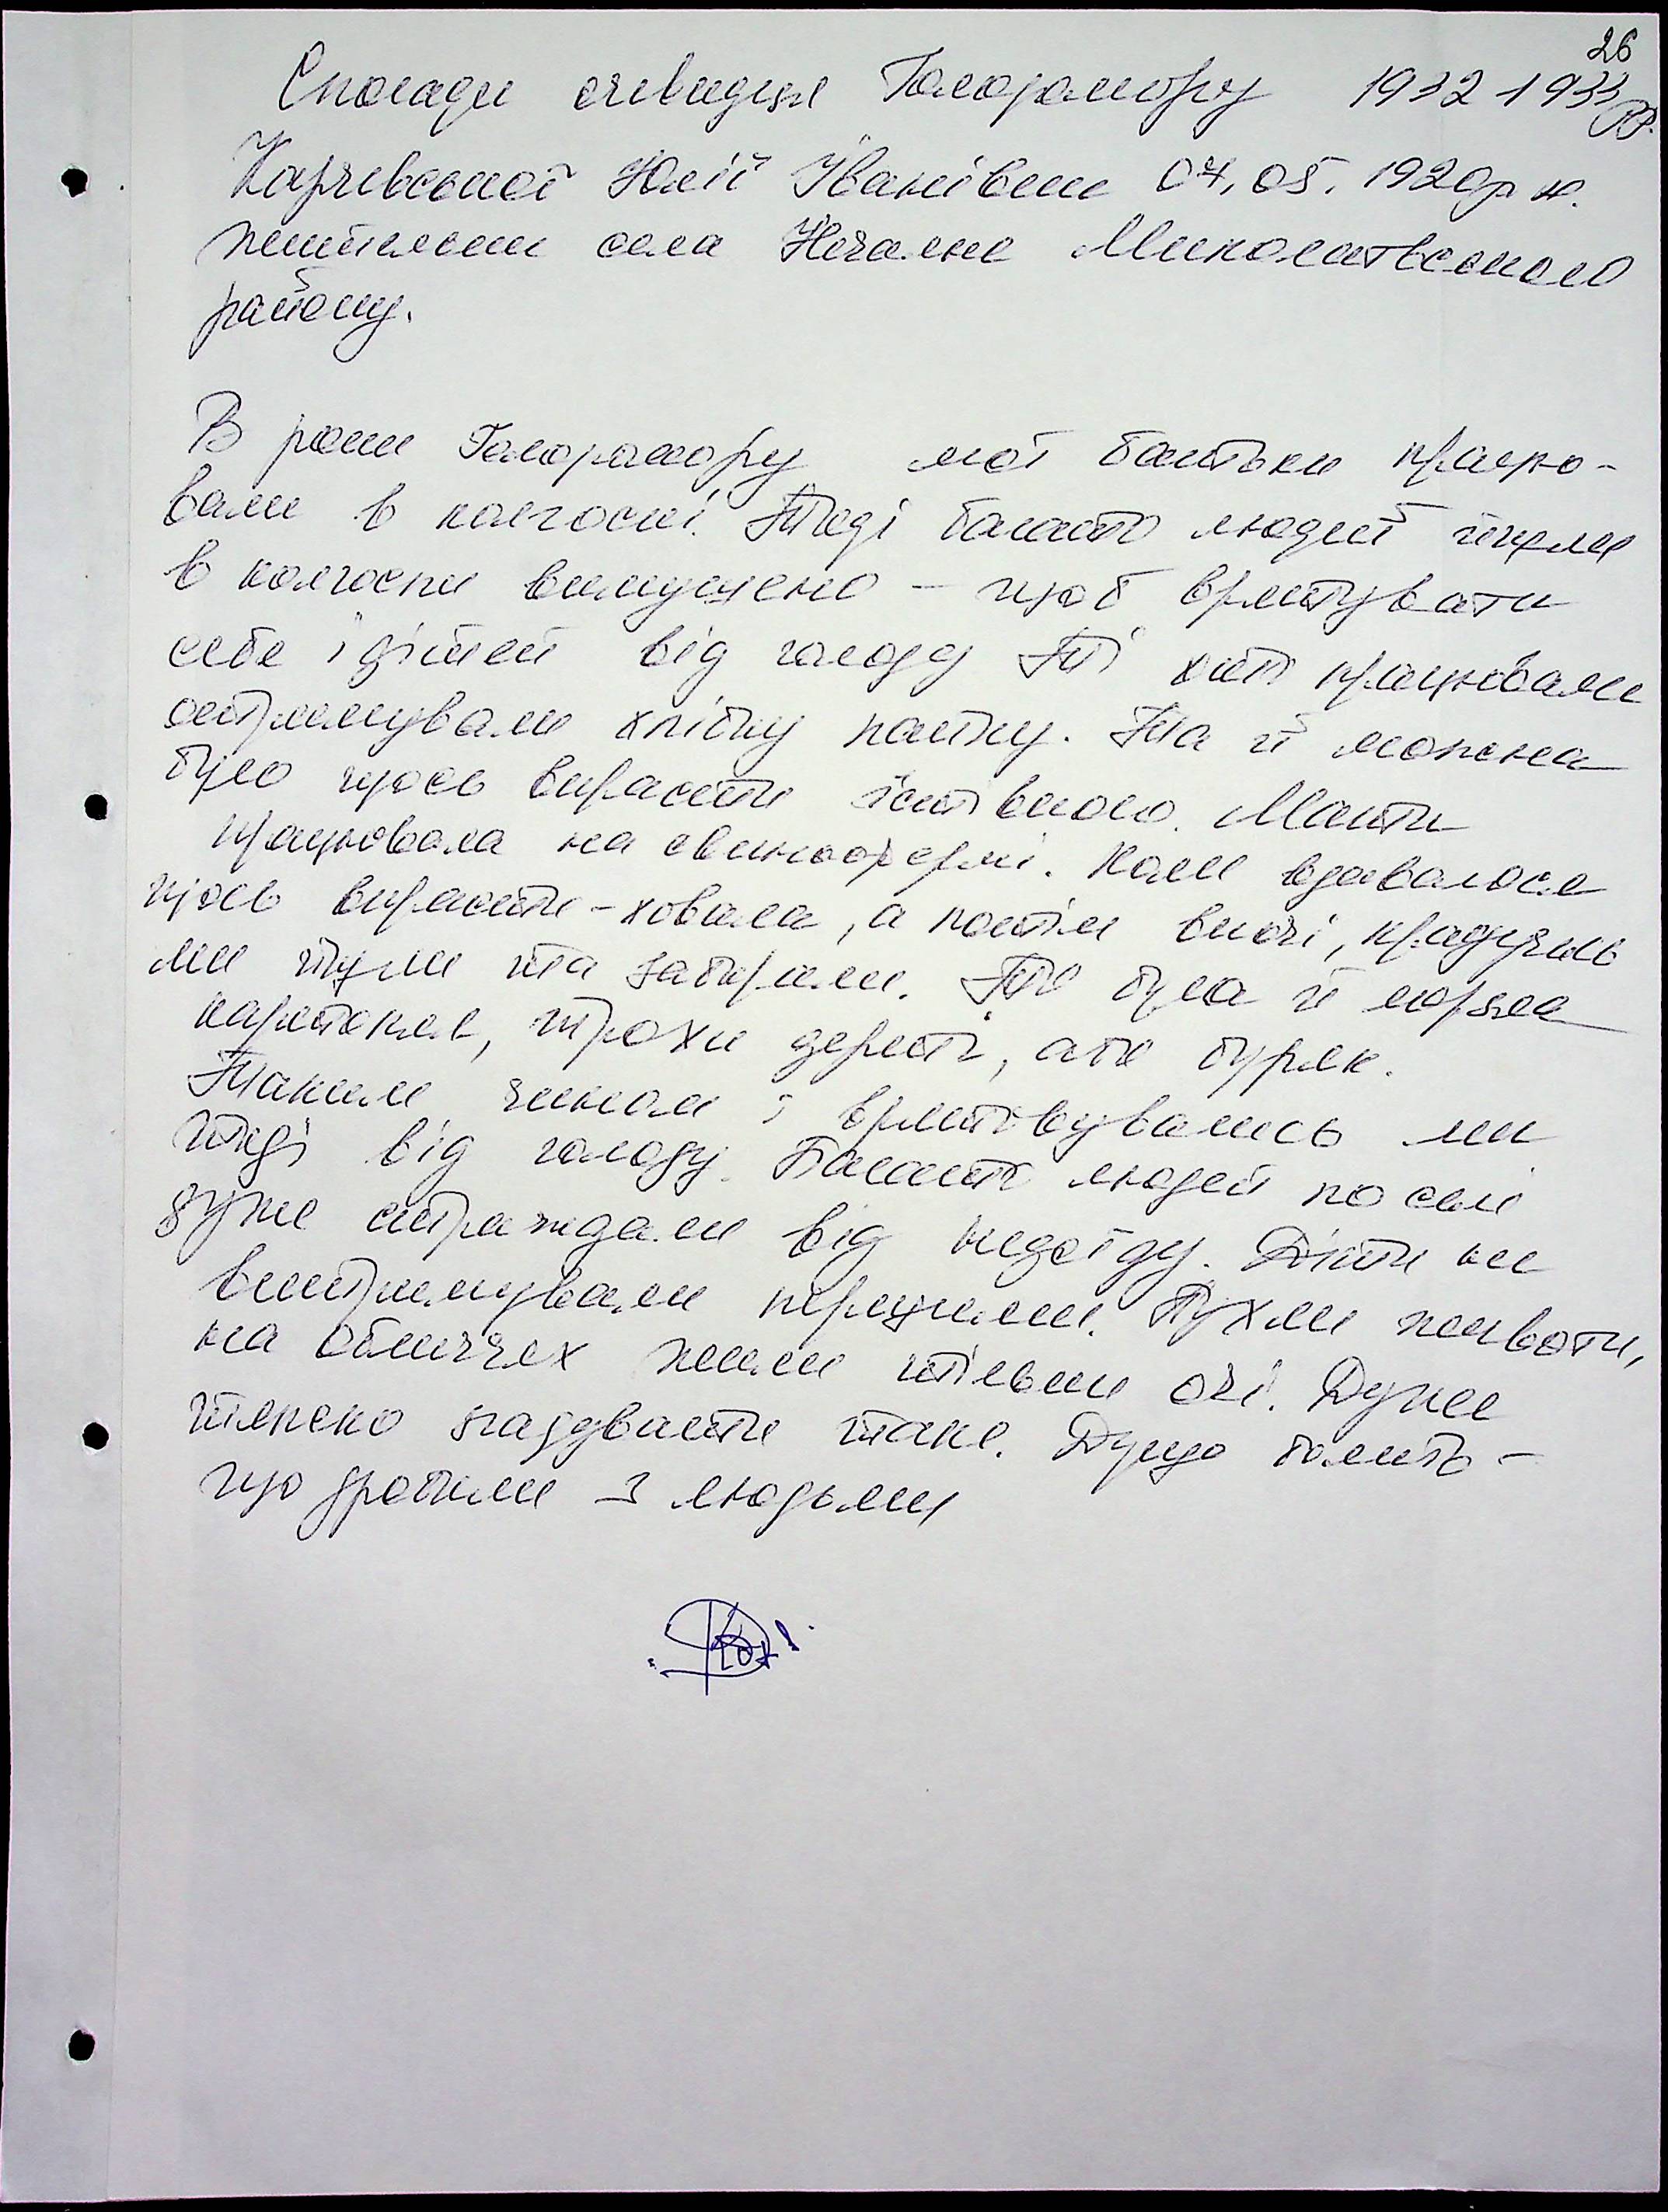 26
Спогади очевидця Голодомору 1932-1933 рр.
Юлії Іванівни 04.05.1920 р н.
жительки села Нечаяне Миколаївського
району.
В роки Голодомору мої батьки працю-
вали в колгоспі. Тоді багато людей йшли
в колгоспи вимушено – щоб врятувати
себе і дітей від голоду. Ті хто працювали
отримували хлібну пайку. Та й можна
було щось вкрасти їстівного. Мати
працювала на свинофермі. Коли вдавалося
щось вкрасти – ховала, а потім вночі, крадучись
ми йшли та забирали. То була й мерзла
картопля, трохи дерті, або буряк.
Таким чином і врятовувались ми
тоді від голоду. Багато людей по селі
дуже страждали від недоїду. Діти не
витримували першими. Пухли животи,
на обличчях жили тільки очі. Дуже
тяжко згадувати таке. Душа болить –
що зробили з людьми